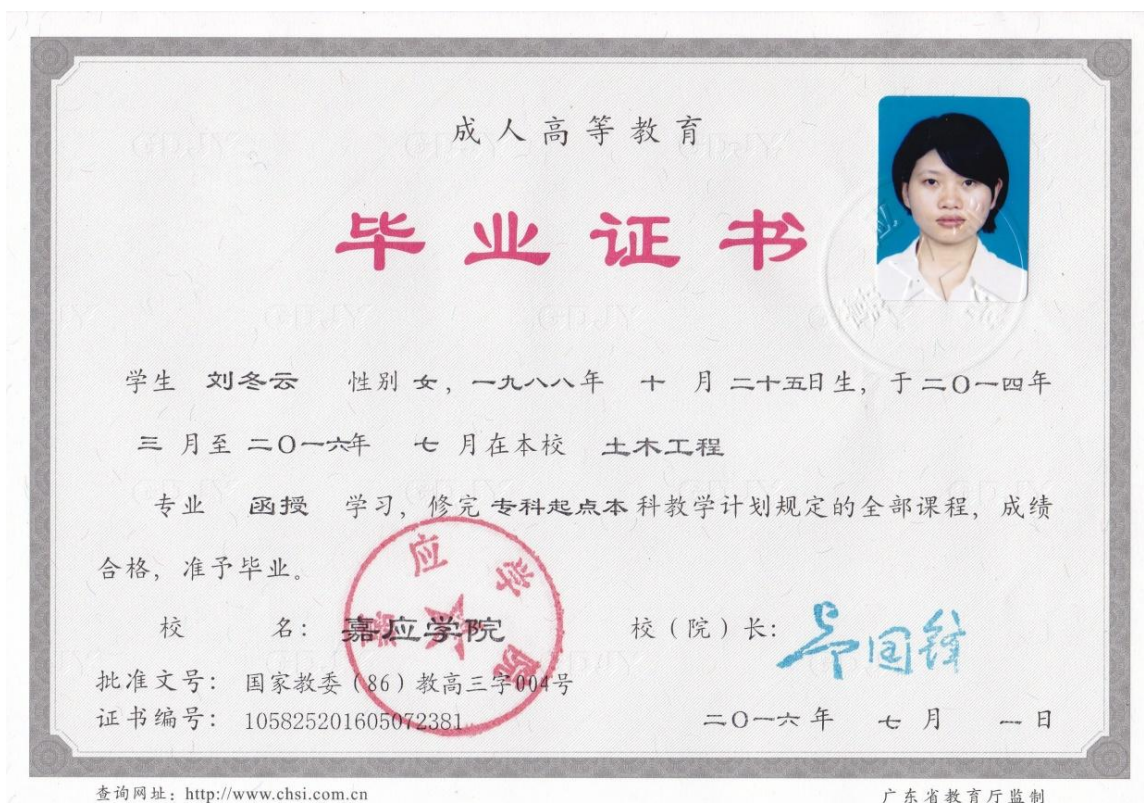 成人高等教育
毕业证书
学生 刘冬云 性别 女，一九八八年 十 月 二十五日生，于 二〇一四年
三 月至 二〇一六年 七 月在本校 土木工程
专业 函授 学习，修完 专科起点本 科教学计划规定的全部课程，成绩
合格，准予毕业。
校 名：嘉应学院 校（院）长：
批准文号：国家教委（86）教高三字004号
证书编号：105825201605072381 二〇一六年 七 月 一 日
嘉应学院
查询网址：http://www.chsi.com.cn 广东省教育厅监制